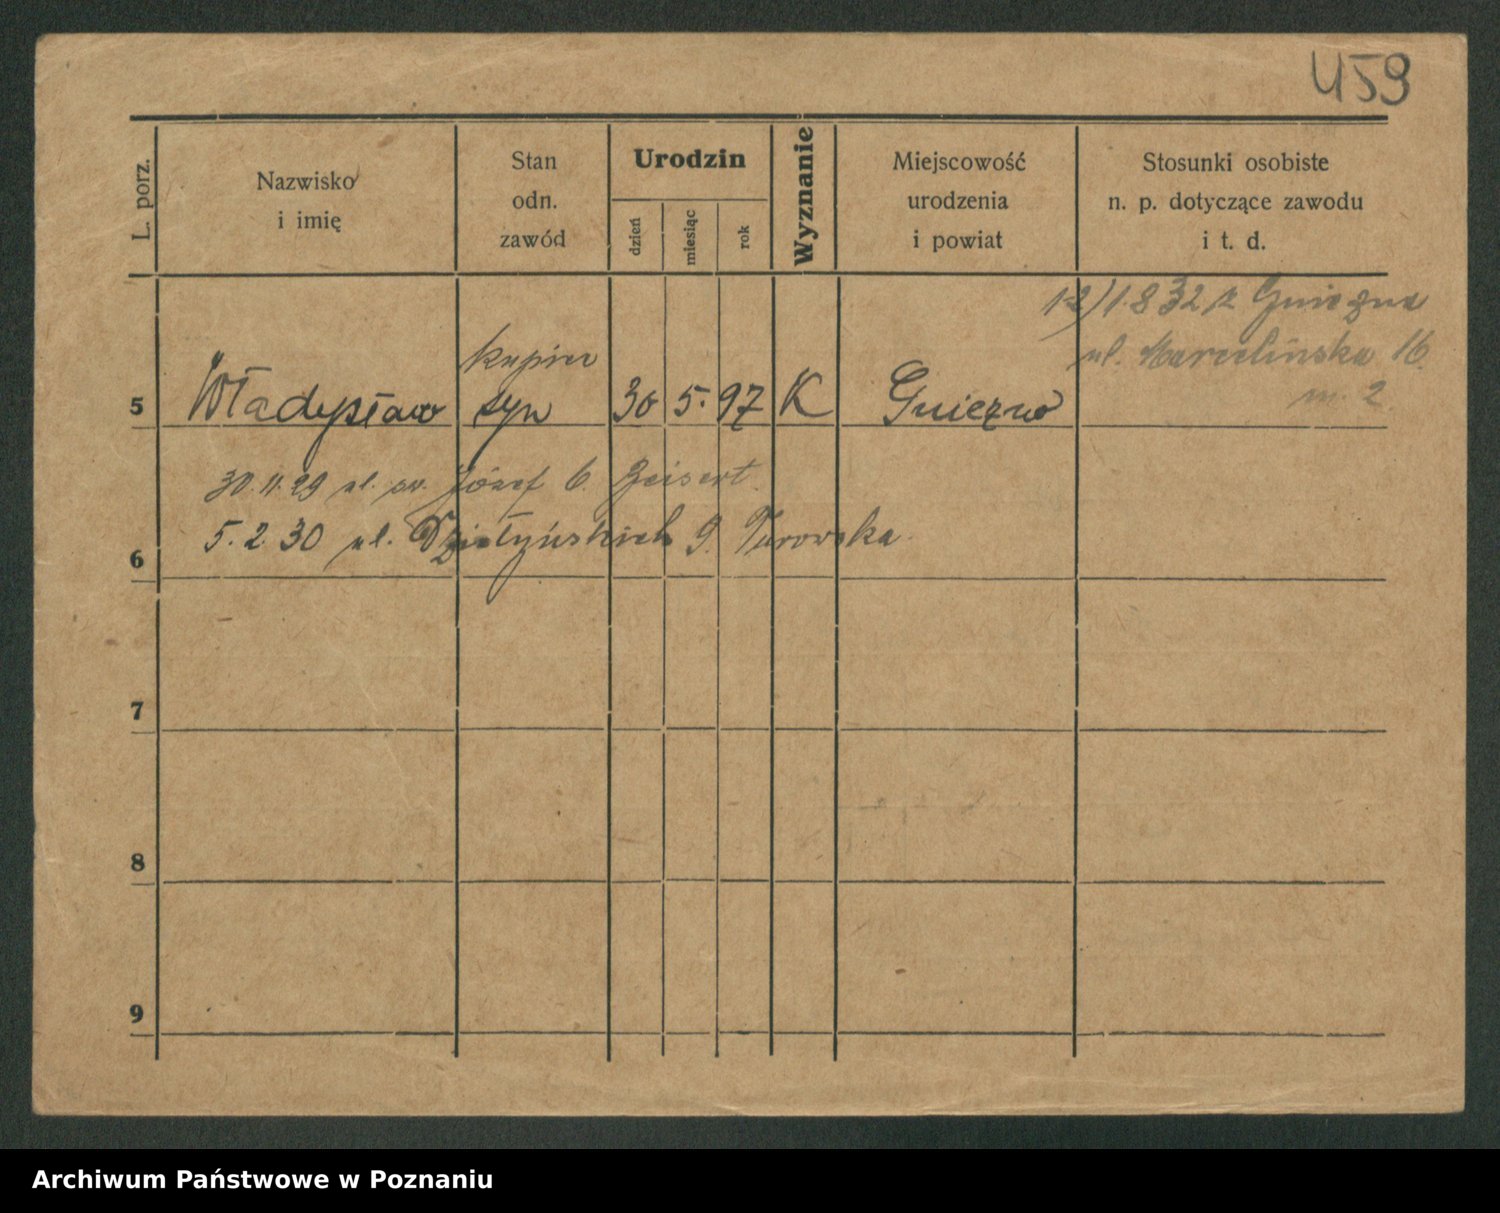 459
L. porz.
Nazwisko
i imię
Stan
odn.
zawód
Urodzin
dzień
miesiąc
rok
Wyznanie
Miejscowość
urodzenia
i powiat
Stosunki osobiste
n. p. dotyczące zawodu
i t. d.
1.8 32 z Gniezna
ul. Marcelińska 16.
m. 2
kupiec
5 Władysław syn 30 5. 97 K Gniezno
30.11.29 ul. św. Józef 6. Zeisert.
5.2.30 ul. Działyńskich 9. Turowska
6
7
8
9
Archiwum Państwowe w Poznaniu